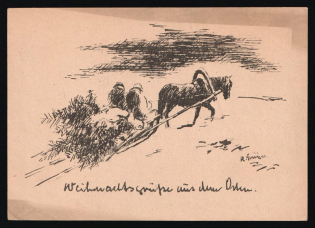 Weihnachtsgrüße aus dem Osten.